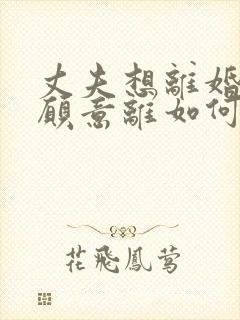 丈夫想離婚
願意離如何
花飛鳳鶯